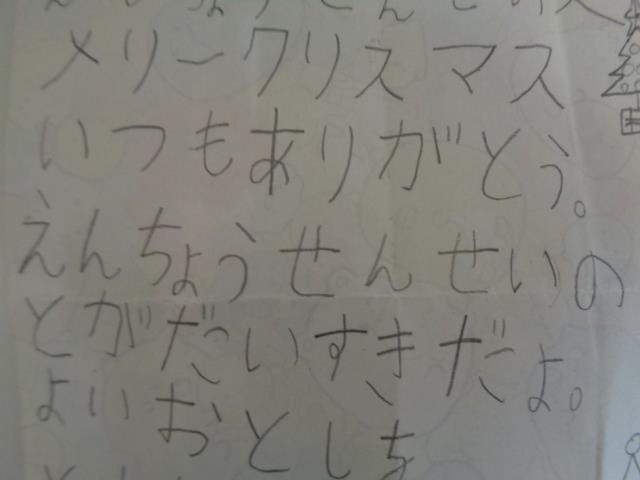 メリークリスマス
いつもありがとう。
えんちょうせんせいの
とがだいすきだよ。
よいおとしを